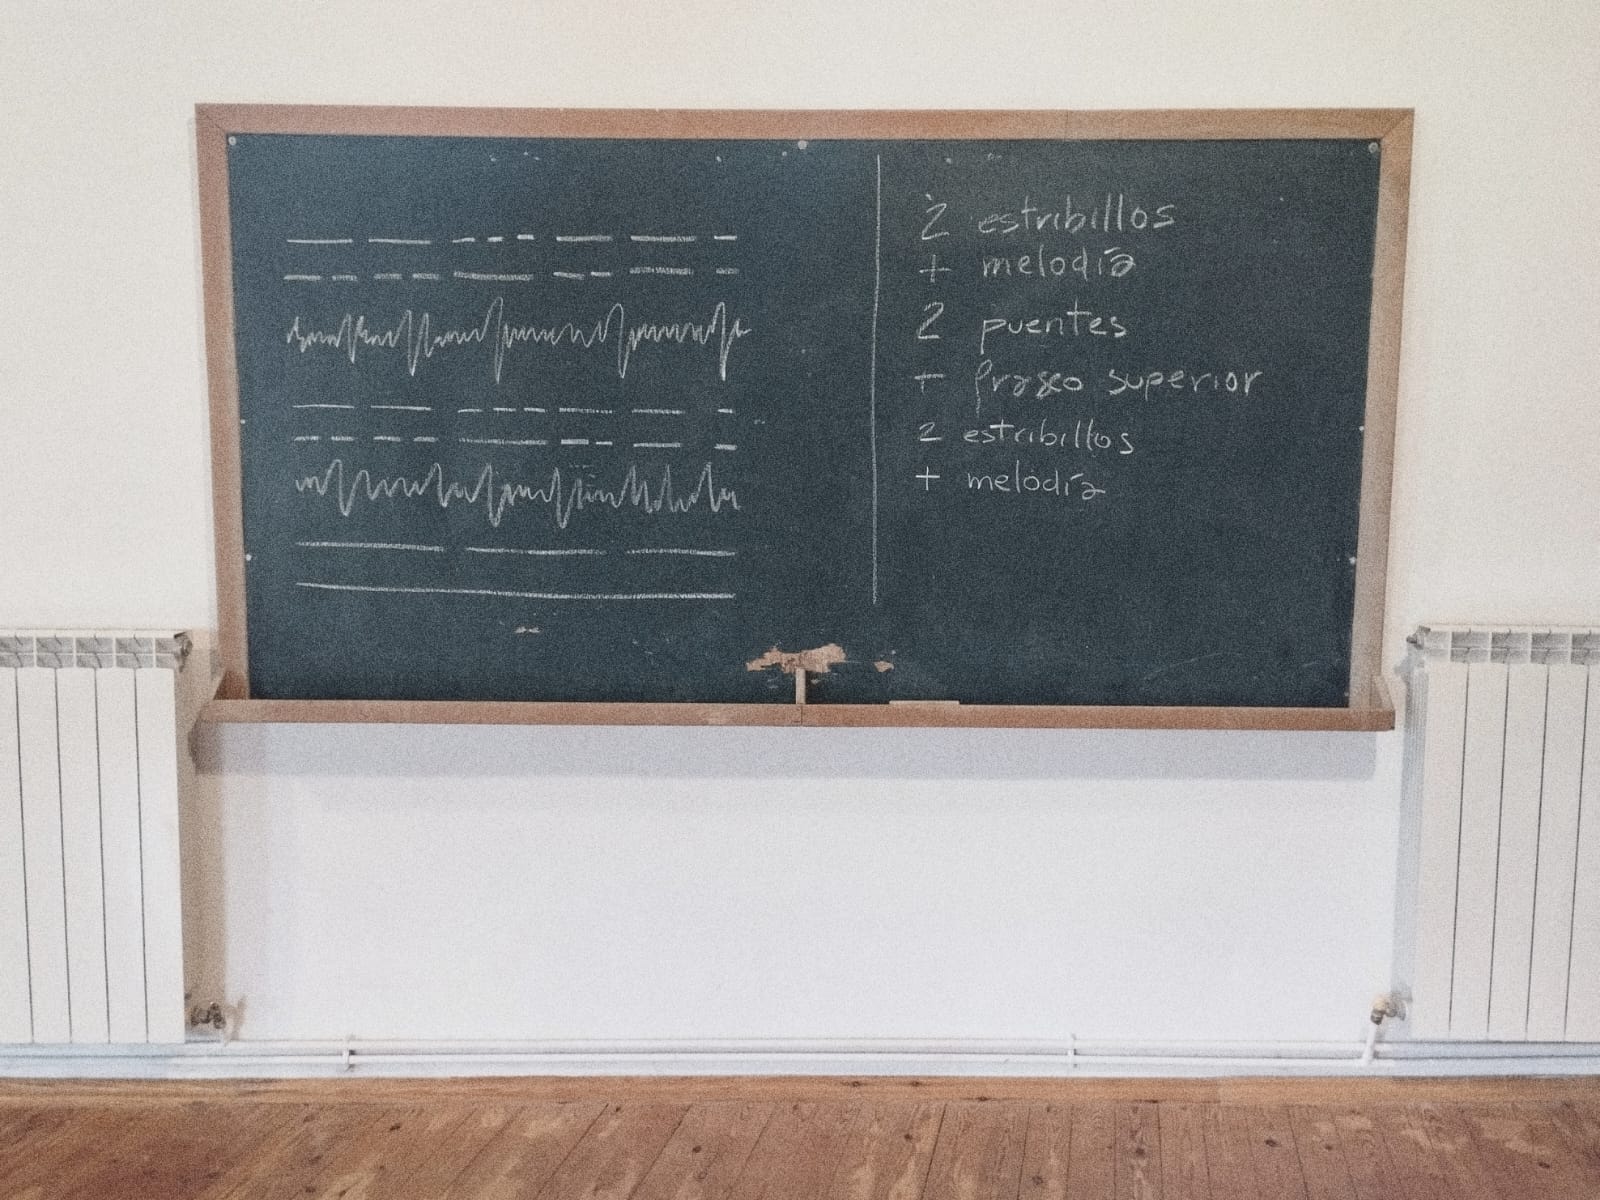 2 estribillos
+ melodía
2 puentes
+ superior
2 estribillos
+ melodía